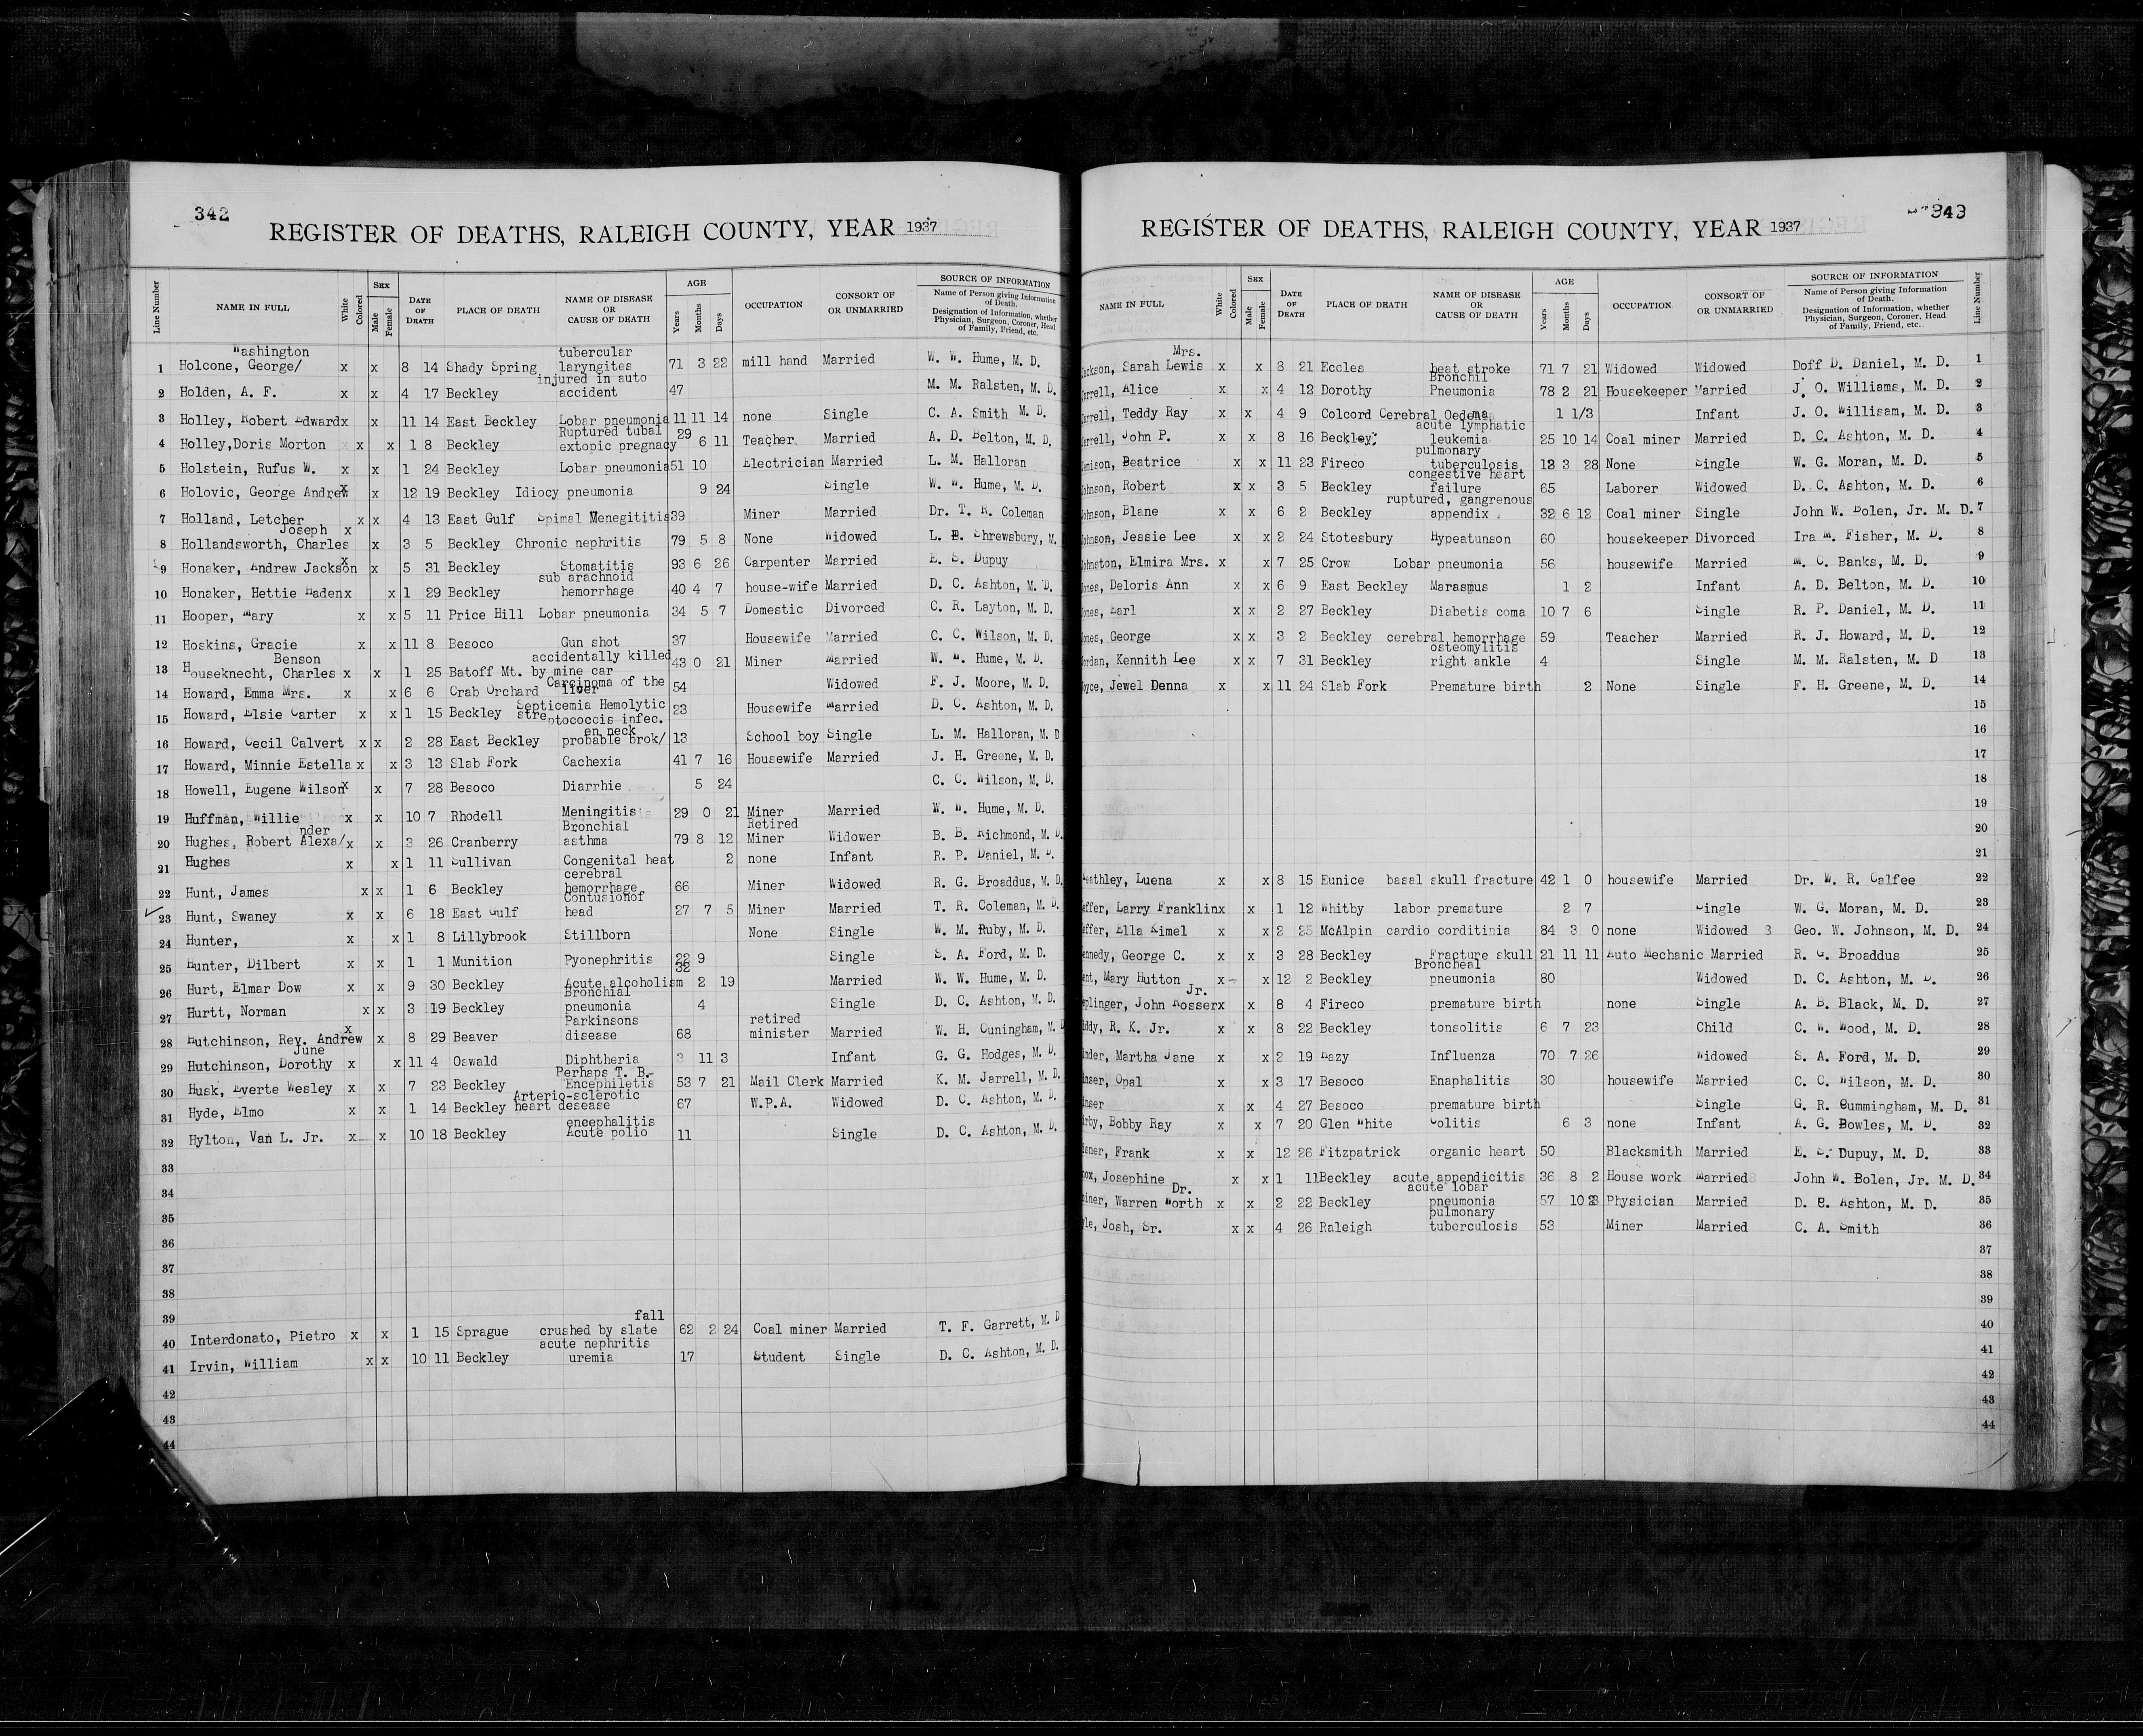 342
REGISTER OF DEATHS, RALEIGH COUNTY, YEAR 1937
Line Number NAME IN FULL White Colored SEX Male Female DATE OF DEATH PLACE OF DEATH NAME OF DISEASE OR CAUSE OF DEATH AGE Years Months Days OCCUPATION CONSORT OF OR UNMARRIED SOURCE OF INFORMATION Name of Person giving Information of Death. Designation of Information, whether Physician, Surgeon, Coroner, Head of Family, Friend, etc.
Washington tubercular
1 Holcone, George/ x x 8 14 Shady Spring laryngites 71 3 22 mill hand Married W. W. Hume, M. D.
injured in auto
2 Holden, A. F. x x 4 17 Beckley accident 47 M. M. Ralsten, M. D.
3 Holley, Robert Edward x x 11 14 East Beckley Lobar pneumonia 11 11 14 none Single C. A. Smith M. D.
Ruptured tubal
4 Holley,Doris Morton x x 1 8 Beckley extopic pregnacy 29 6 11 Teacher Married A. D. Belton, M. D.
5 Holstein, Rufus W. x x 1 24 Beckley Lobar pneumonia 51 10 Electrician Married L. M. Halloran
6 Holovic, George Andrew x x 12 19 Beckley Idiocy pneumonia 9 24 Single W. W. Hume, M. D.
7 Holland, Letcher x x 4 13 East Gulf Spimal Menegititis 39 Miner Married Dr. T. R. Coleman
Joseph x
8 Hollandsworth, Charles x 3 5 Beckley Chronic nephritis 79 5 8 None Widowed L. E. Shrewsbury, M.
9 Honaker, Andrew Jackson x x 5 31 Beckley Stomatitis 93 6 26 Carpenter Married E. S. Dupuy
sub arachnoid
10 Honaker, Hettie Haden x x 1 29 Beckley hemorrhage 40 4 7 house-wife Married D. C. Ashton, M. D.
11 Hooper, Mary x x 5 11 Price Hill Lobar pneumonia 34 5 7 Domestic Divorced C. R. Layton, M. D.
12 Hoskins, Gracie x x 11 8 Besoco Gun shot 37 Housewife Married C. C. Wilson, M. D.
Benson accidentally killed
13 Houseknecht, Charles x x 1 25 Batoff Mt. by mine car 43 0 21 Miner Married W. W. Hume, M. D.
Carcinoma of the
14 Howard, Emma Mrs. x x 6 6 Crab Orchard liver 54 Widowed F. J. Moore, M. D.
Septicemia Hemolytic
15 Howard, Elsie Carter x x 1 15 Beckley streptococcis infec. 23 Housewife Married D. C. Ashton, M. D.
en neck
16 Howard, Cecil Calvert x x 2 28 East Beckley probable brok/ 13 School boy Single L. M. Halloran, M. D
17 Howard, Minnie Estella x x 3 13 Slab Fork Cachexia 41 7 16 Housewife Married J. H. Greene, M. D.
18 Howell, Eugene Wilson x x 7 28 Besoco Diarrhie 5 24 C. C. Wilson, M. D.
19 Huffman, Willie x x 10 7 Rhodell Meningitis 29 0 21 Miner Married W. W. Hume, M. D.
nder Bronchial Retired
20 Hughes, Robert Alexa/ x x 3 26 Cranberry asthma 79 8 12 Miner Widower B. B. Richmond, M. D.
21 Hughes x x 1 11 Sullivan Congenital heat 2 none Infant R. P. Daniel, M. D.
cerebral
22 Hunt, James x x 1 6 Beckley hemorrhage 66 Miner Widowed R. G. Broaddus, M. D.
Contusionof
23 Hunt, Swaney x x 6 18 East Gulf head 27 7 5 Miner Married T. R. Coleman, M. D.
24 Hunter, x x 1 8 Lillybrook Stillborn None Single W. M. Ruby, M. D.
25 Hunter, Dilbert x x 1 1 Munition Pyonephritis 22 9 Single S. A. Ford, M. D.
26 Hurt, Elmar Dow x x 9 30 Beckley Acute alcoholism 32 2 19 Married W. W. Hume, M. D.
Bronchial
27 Hurtt, Norman x x 3 19 Beckley pneumonia 4 Single D. C. Ashton, M. D.
Parkinsons retired
28 Hutchinson, Rev. Andrew x x 8 29 Beaver disease 68 minister Married W. H. Cuningham, M. D
June
29 Hutchinson, Dorothy x x 11 4 Oswald Diphtheria 3 11 3 Infant G. G. Hodges, M. D.
Perhaps T. B.-
30 Husk, Everte Wesley x x 7 23 Beckley Encephiletis 53 7 21 Mail Clerk Married K. M. Jarrell, M. D.
Arterio-sclerotic
31 Hyde, Elmo x x 1 14 Beckley heart desease 67 W.P.A. Widowed D. C. Ashton, M. D.
encephalitis
32 Hylton, Van L. Jr. x x 10 18 Beckley Acute polio 11 Single D. C. Ashton, M. D.
33
34
35
36
37
38
39
fall
40 Interdonato, Pietro x x 1 15 Sprague crushed by slate 62 2 24 Coal miner Married T. F. Garrett, M. D
acute nephritis
41 Irvin, William x x 10 11 Beckley uremia 17 Student Single D. C. Ashton, M. D.
42
43
44
343
REGISTER OF DEATHS, RALEIGH COUNTY, YEAR 1937
NAME IN FULL White Colored SEX Male Female DATE OF DEATH PLACE OF DEATH NAME OF DISEASE OR CAUSE OF DEATH AGE Years Months Days OCCUPATION CONSORT OF OR UNMARRIED SOURCE OF INFORMATION Name of Person giving Information of Death. Designation of Information, whether Physician, Surgeon, Coroner, Head of Family, Friend, etc. Line Number
Mrs.
ckson, Sarah Lewis x x 8 21 Eccles heat stroke 71 7 21 Widowed Widowed Doff D. Daniel, M. D. 1
Bronchil
rrell, Alice x x 4 12 Dorothy Pneumonia 78 2 21 Housekeeper Married J. O. Williams, M. D. 2
rrell, Teddy Ray x x 4 9 Colcord Cerebral Oedema 1 1/3 Infant J. O. Willisam, M. D. 3
acute lymphatic
rrell, John P. x x 8 16 Beckley leukemia 25 10 14 Coal miner Married D. C. Ashton, M. D. 4
pulmonary
mison, Beatrice x x 11 23 Fireco tuberculosis 13 3 28 None Single W. G. Moran, M. D. 5
congestive heart
hnson, Robert x x 3 5 Beckley failure 65 Laborer Widowed D. C. Ashton, M. D. 6
ruptured, gangrenous
hnson, Blane x x 6 2 Beckley appendix 32 6 12 Coal miner Single John W. Bolen, Jr. M. D. 7
hnson, Jessie Lee x x 2 24 Stotesbury Hypeatunson 60 housekeeper Divorced Ira M. Fisher, M. D. 8
hnston, Elmira Mrs. x x 7 25 Crow Lobar pneumonia 56 housewife Married M. C. Banks, M. D. 9
nes, Deloris Ann x x 6 9 East Beckley Marasmus 1 2 Infant A. D. Belton, M. D. 10
nes, Earl x x 2 27 Beckley Diabetis coma 10 7 6 Single R. P. Daniel, M. D. 11
nes, George x x 3 2 Beckley cerebral hemorrhage 59 Teacher Married R. J. Howard, M. D. 12
osteomylitis
rdan, Kennith Lee x x 7 31 Beckley right ankle 4 Single M. M. Ralsten, M. D 13
yce, Jewel Denna x x 11 24 Slab Fork Premature birth 2 None Single F. H. Greene, M. D. 14
15
16
17
18
19
20
21
athley, Luena x x 8 15 Eunice basal skull fracture 42 1 0 housewife Married Dr. W. R. Calfee 22
ffer, Larry Franklin x x 1 12 Whitby labor premature 2 7 Single W. G. Moran, M. D. 23
ffer, Ella Kimel x x 2 25 McAlpin cardio corditinia 84 3 0 none Widowed 3 Geo. W. Johnson, M. D. 24
nnedy, George C. x x 3 28 Beckley Fracture skull 21 11 11 Auto Mechanic Married R. G. Broaddus 25
Broncheal
nt, Mary Hutton x x 12 2 Beckley pneumonia 80 Widowed D. C. Ashton, M. D. 26
Jr.
plinger, John Rosser x x 8 4 Fireco premature birth none Single A. B. Black, M. D. 27
ddy, R. K. Jr. x x 8 22 Beckley tonsolitis 6 7 23 Child C. W. Wood, M. D. 28
nder, Martha Jane x x 2 19 Eazy Influenza 70 7 26 Widowed S. A. Ford, M. D. 29
nser, Opal x x 3 17 Besoco Enaphalitis 30 housewife Married C. C. Wilson, M. D. 30
nser x x 4 27 Besoco premature birth Single G. R. Cummingham, M. D. 31
rby, Bobby Ray x x 7 20 Glen White Colitis 6 3 none Infant A. G. Bowles, M. D. 32
sner, Frank x x 12 26 Fitzpatrick organic heart 50 Blacksmith Married E. S. Dupuy, M. D. 33
ox, Josephine x x 1 11 Beckley acute appendicitis 36 8 2 House work Married John W. Bolen, Jr. M. D. 34
Dr. acute lobar
iner, Warren Worth x x 2 22 Beckley pneumonia 57 10 23 Physician Married D. C. Ashton, M. D. 35
pulmonary
le, Josh, Sr. x x 4 26 Raleigh tuberculosis 53 Miner Married C. A. Smith 36
37
38
39
40
41
42
43
44